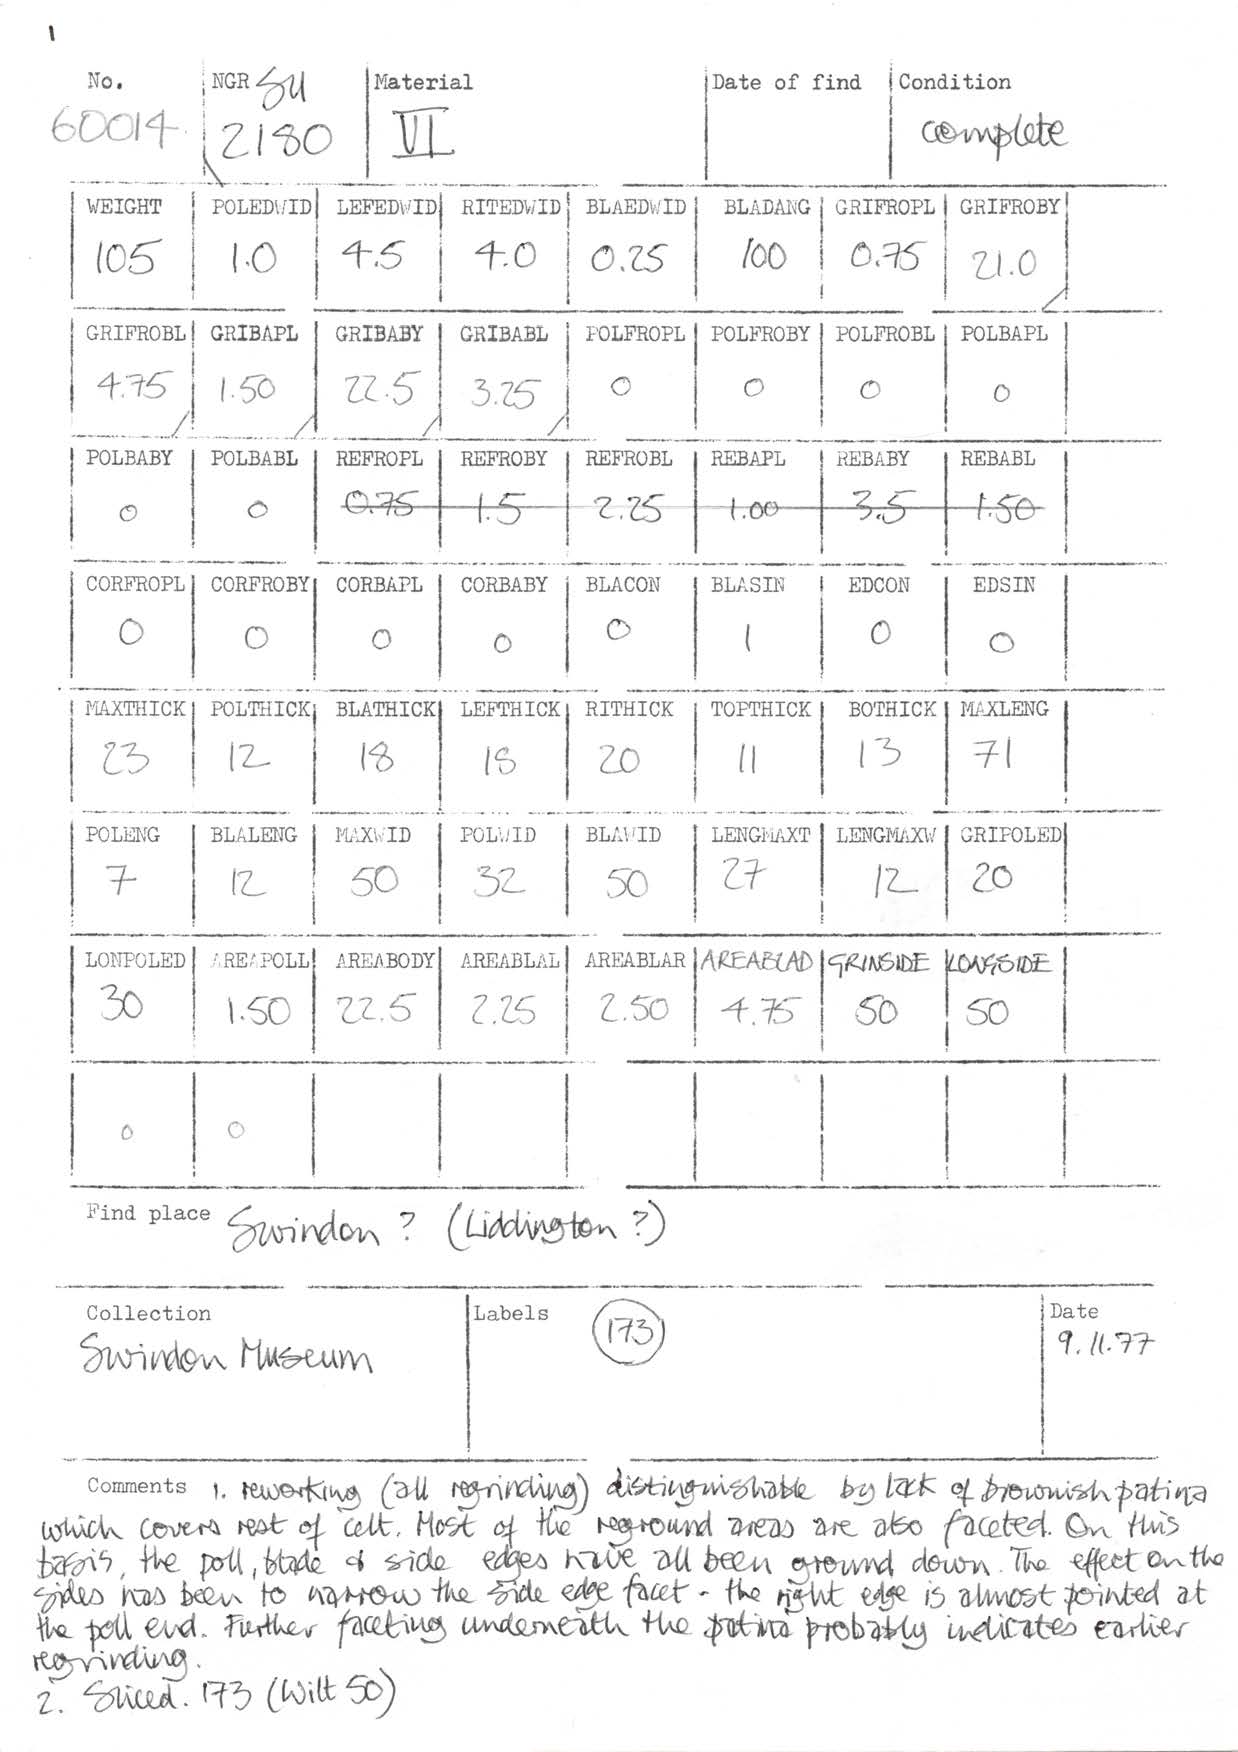 1
No. NGR SU Material Date of find Condition
60014 2180 VI complete
WEIGHT POLEDWID LEFEDWID RITEDWID BLAEDWID BLADANG GRIFROPL GRIFROBY
105 1.0 4.5 4.0 0.25 100 0.75 21.0
GRIFROBL GRIBAPL GRIBABY GRIBABL POLFROPL POLFROBY POLFROBL POLBAPL
4.75 1.50 22.5 3.25 0 0 0 0
POLBABY POLBABL REFROPL REFROBY REFROBL REBAPL REBABY REBABL
0 0 0.75 1.5 2.25 1.00 3.5 1.50
CORFROPL CORFROBY CORBAPL CORBABY BLACON BLASIN EDCON EDSIN
0 0 0 0 0 1 0 0
MAXTHICK POLTHICK BLATHICK LEFTHICK RITHICK TOPTHICK BOTHICK MAXLENG
23 12 18 18 20 11 13 71
POLENG BLALENG MAXWID POLWID BLAWID LENGMAXT LENGMAXW GRIPOLED
7 12 50 32 50 27 12 20
LONPOLED AREAPOLL AREABODY AREABLAL AREABLAR AREABLAD GRINSIDE LONGSIDE
30 1.50 22.5 2.25 2.50 4.75 50 50
0 0
Find place Swindon ? (Liddington ?)
Collection Labels 173 Date
Swindon Museum 9.11.77
Comments 1. reworking (all regrinding) distinguishable by lack of brownish patina
which covers rest of celt. Most of the reground areas are also faceted. On this
basis, the poll, blade & side edges have all been ground down. The effect on the
sides has been to narrow the side edge facet - the right edge is almost pointed at
the poll end. Further faceting underneath the patina probably indicates earlier
regrinding.
2. Sliced. 173 (Wilt 50)